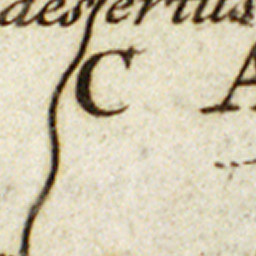 desertus
C A